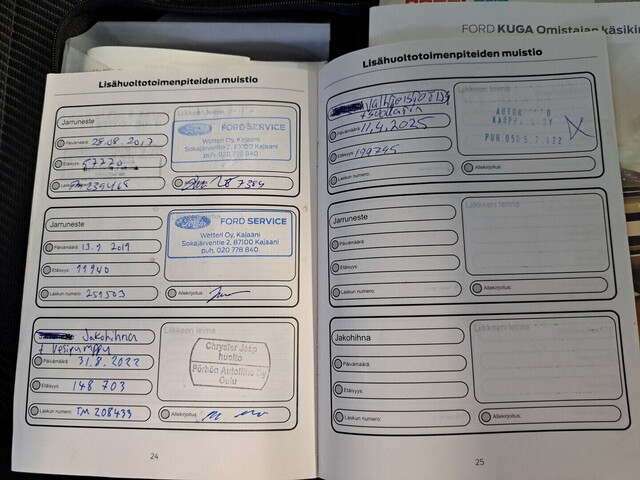 FORD KUGA Omistajan käsikir
Lisähuoltotoimenpiteiden muistio
Jarruneste
Päivämäärä: 28.08.2017
Etäisyys: 57720
FORD SERVICE
Wetteri Oy, Kajaani
Sokajärventie 2, 87100 Kajaani
puh. 020 778 840
Jarruneste
Päivämäärä: 13.9.2019
Etäisyys:
Laskun numero: 259503
Liikkeen leima
FORD SERVICE
Wetteri Oy, Kajaani
Sokajärventie 2, 87100 Kajaani
puh. 020 778 840
Allekirjoitus:
Jakohihna
+ vesipumppu
Päivämäärä: 31.8.2022
Etäisyys: 148 703
Laskun numero: TM 208433
Liikkeen leima
Chrysler Jeep
huolto
Pörhön Autoliike Oy
Oulu
Allekirjoitus:
24
Lisähuoltotoimenpiteiden muistio
Päivämäärä: 11.4.2025
Etäisyys: 199745
Laskun numero:
Liikkeen leima
Allekirjoitus:
Jarruneste
Päivämäärä:
Etäisyys:
Laskun numero:
Liikkeen leima
Allekirjoitus:
Jakohihna
Päivämäärä:
Etäisyys:
Laskun numero:
Liikkeen leima
Allekirjoitus:
25